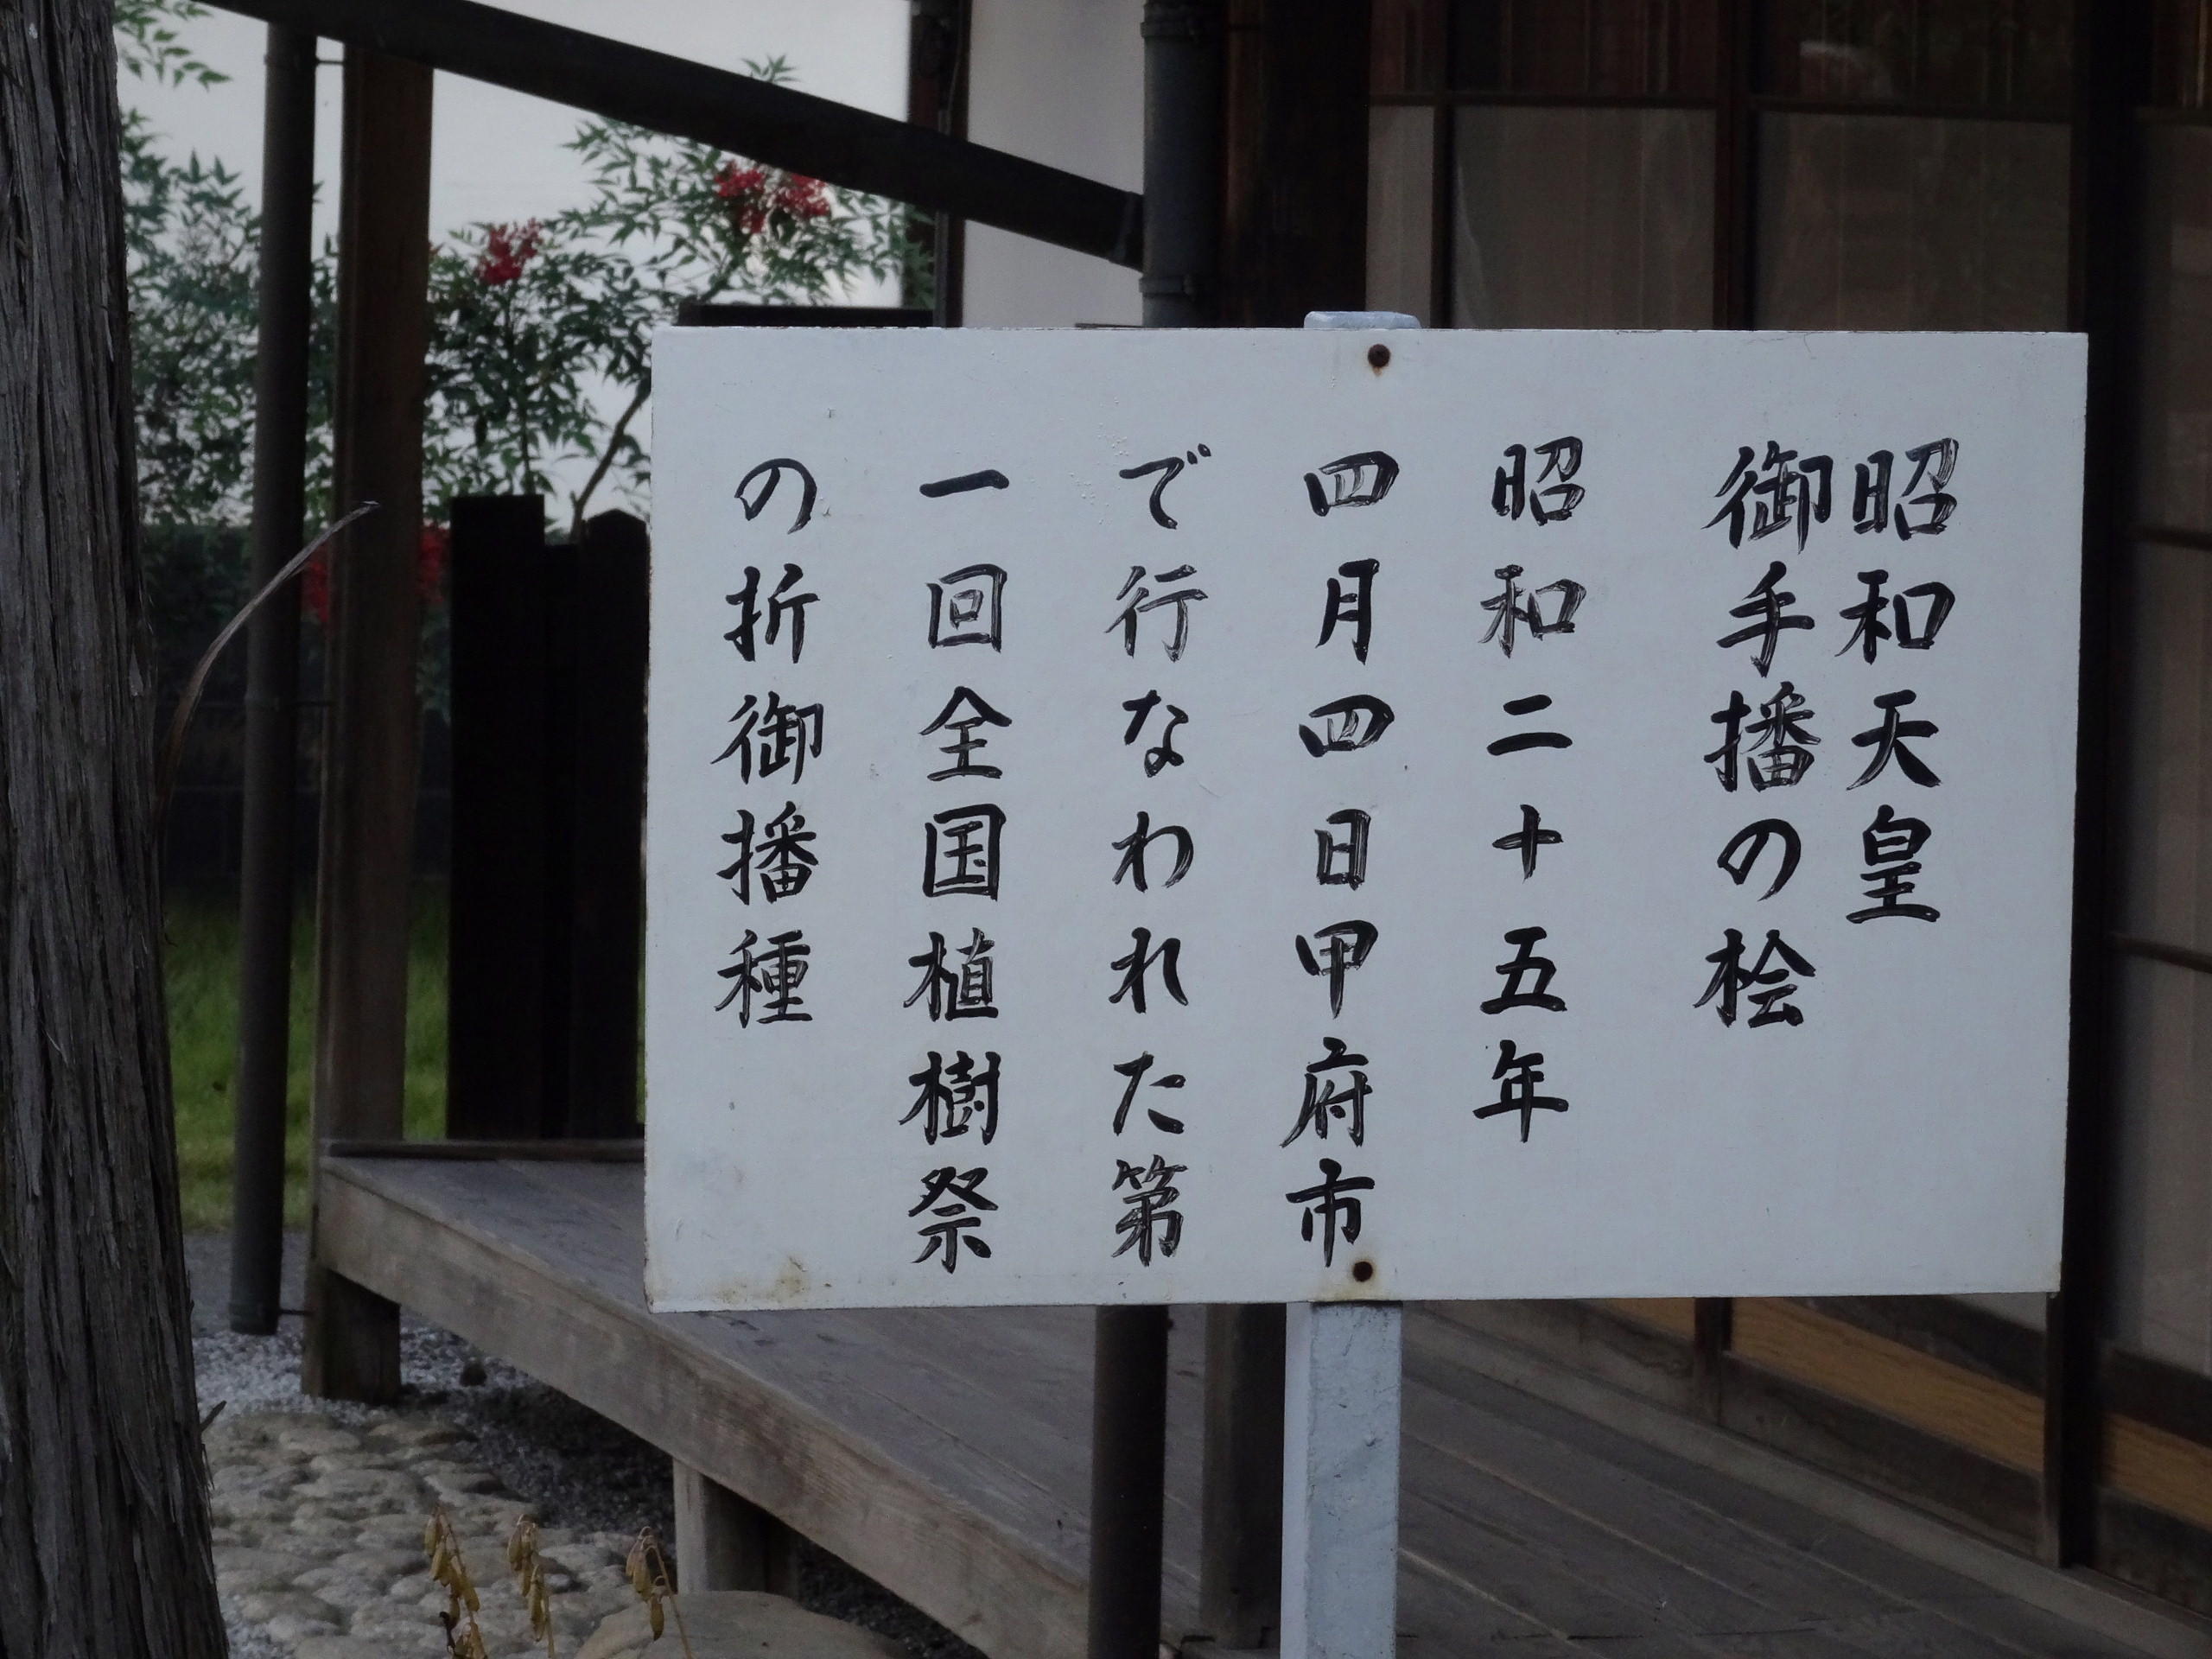 昭和天皇
御手播の桧
昭和二十五年
四月四日甲府市
で行なわれた第
一回全国植樹祭
の折御播種